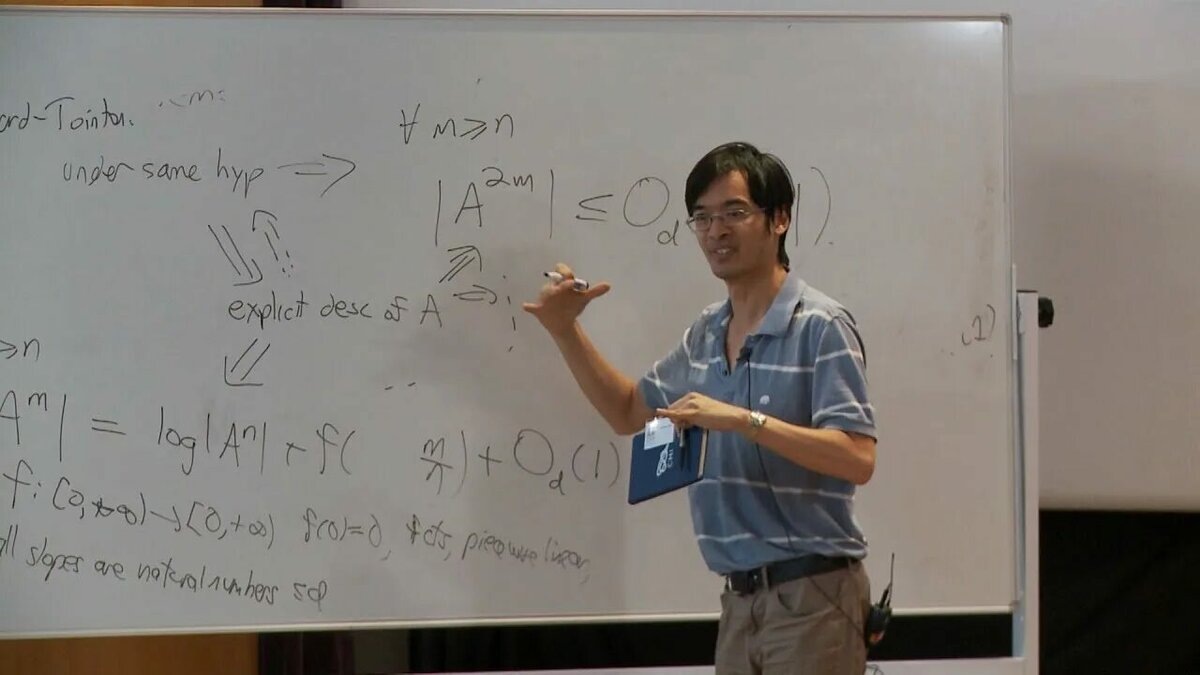 ord-Tointon.
∀ m⩾n
under same hyp ⟹
|A^{2m}| ≤ O_d |1).
explicit desc of A ⇒
⩾n
A^m| = log|A^n| + f( m/n) + O_d(1)
f: [0,+∞) → [0,+∞) f(0)=0, cts, piecewise linear,
all slopes are natural numbers ≤d